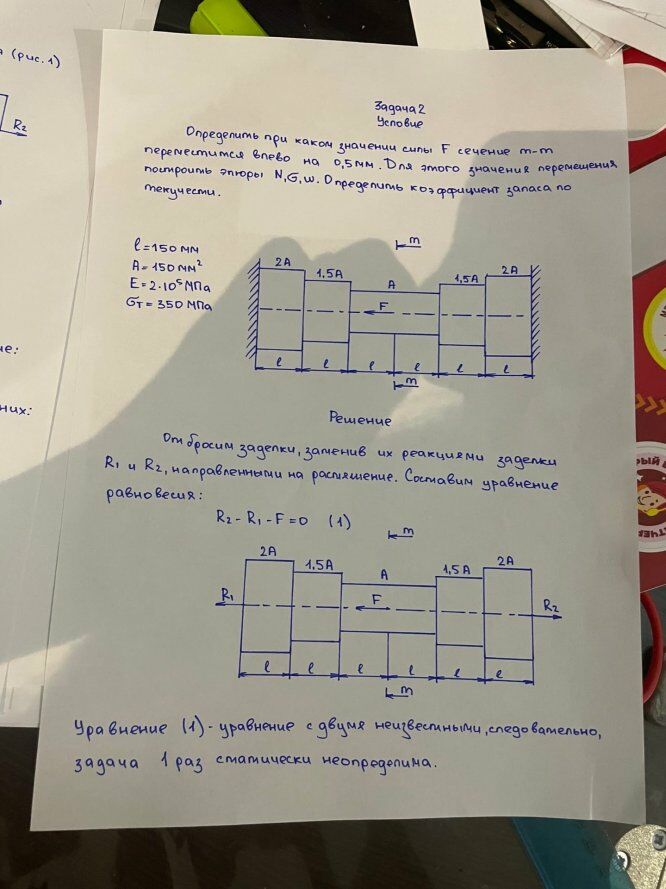 (рис.1)
R₂
Задача 2
Условие
Определить при каком значении силы F сечение m-m
переместится влево на 0,5мм. Для этого значения перемещения
построить эпюры N,σ,w. Определить коэффициент запаса по
текучести.
l=150 мм
A=150 мм²
E=2·10⁵ МПа
σт=350 МПа
m
2A
1,5A
A
1,5A
2A
F
l
l
l
l
l
l
m
Решение
Отбросим заделки, заменив их реакциями заделки
R₁ и R₂, направленными на растяжение. Составим уравнение
равновесия:
R₂ - R₁ - F = 0 (1)
m
2A
1,5A
A
1,5A
2A
R₁
F
R₂
l
l
l
l
l
l
m
Уравнение (1) - уравнение с двумя неизвестными, следовательно,
задача 1 раз статически неопределима.
ие:
них: